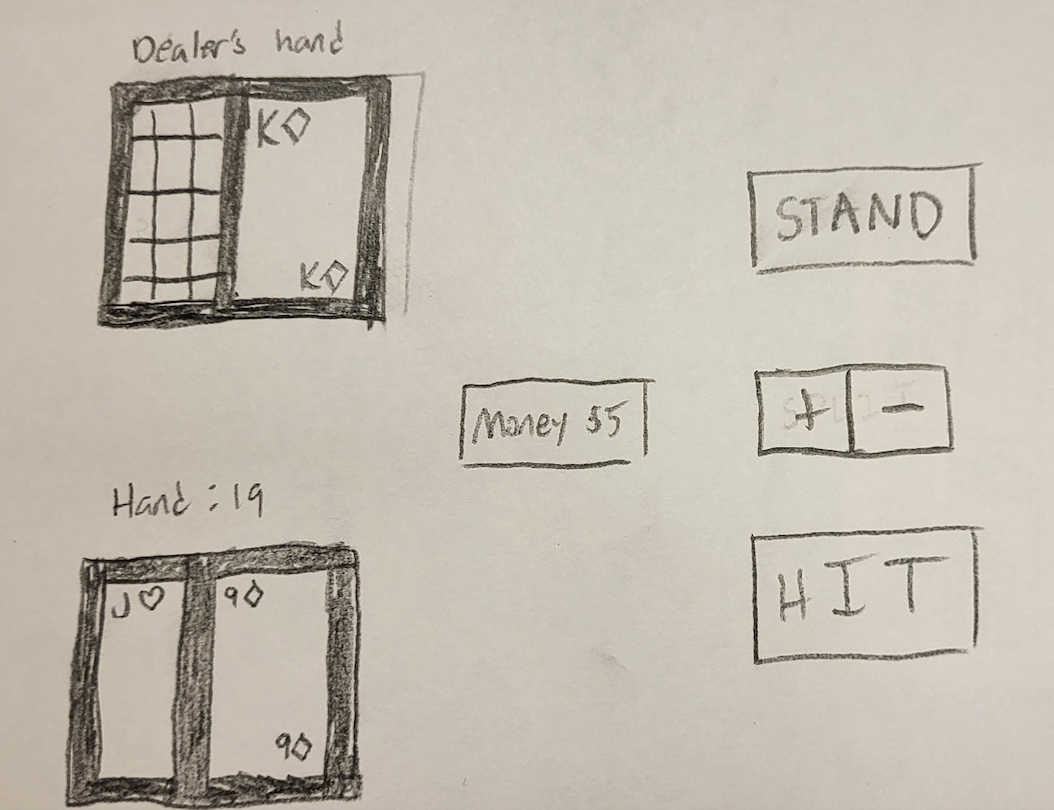 Dealer's hand
K♢
K♢
STAND
Money $5
+ -
Hand : 19
J♡
9♢
9♢
HIT